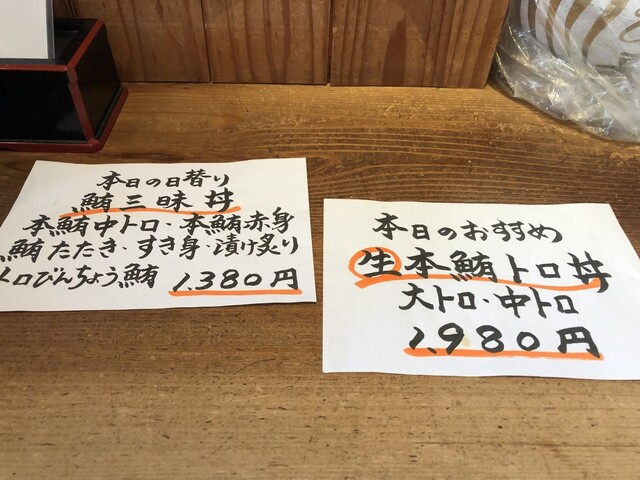 本日の日替り
鮪三昧丼
本鮪中トロ・本鮪赤身
鮪たたき・すき身・漬け炙り
トロびんちょう鮪 1.380円
本日のおすすめ
生本鮪トロ丼
大トロ・中トロ
1.980円